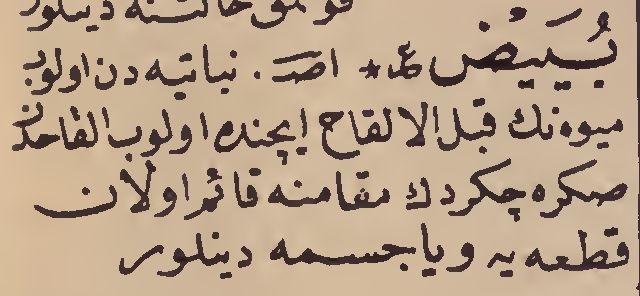 حالتنه دينلور
بُيَيْض ع * اصـ . نباتيه دن اولوب
ميوه نك قبل الالقاح ايچنده اولوب القاحدن
صكره چكردك مقامنه قائم اولان
قطعه يه ويا جسمه دينلور